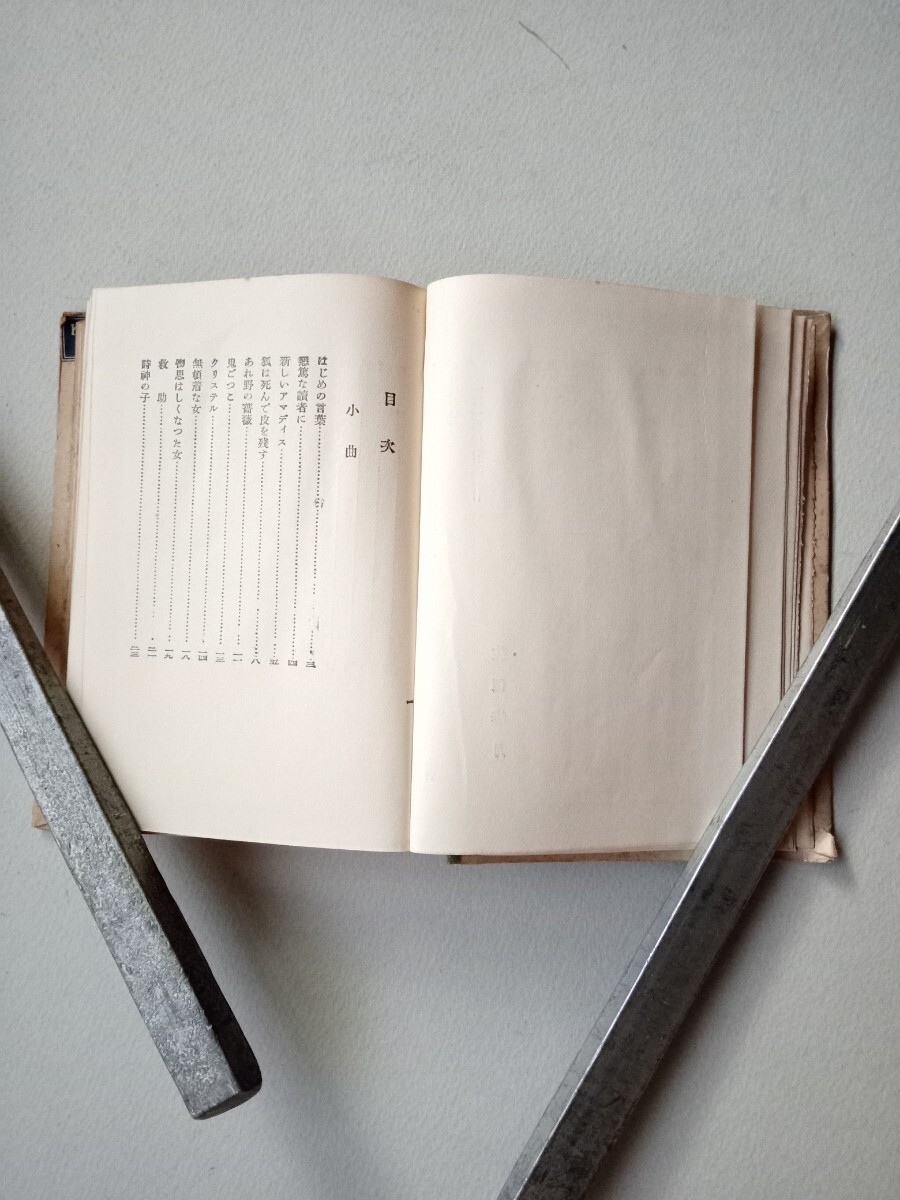 目次
小曲
はじめの言葉 三
懇篤な讀者に 四
新しいアマディス 五
狐は死んで皮を残す 八
あれ野の薔薇
鬼ごつこ
クリステル 一三
無頓着な女 一四
物思はしくなつた女 一八
救助 一九
時神の子 二三
一